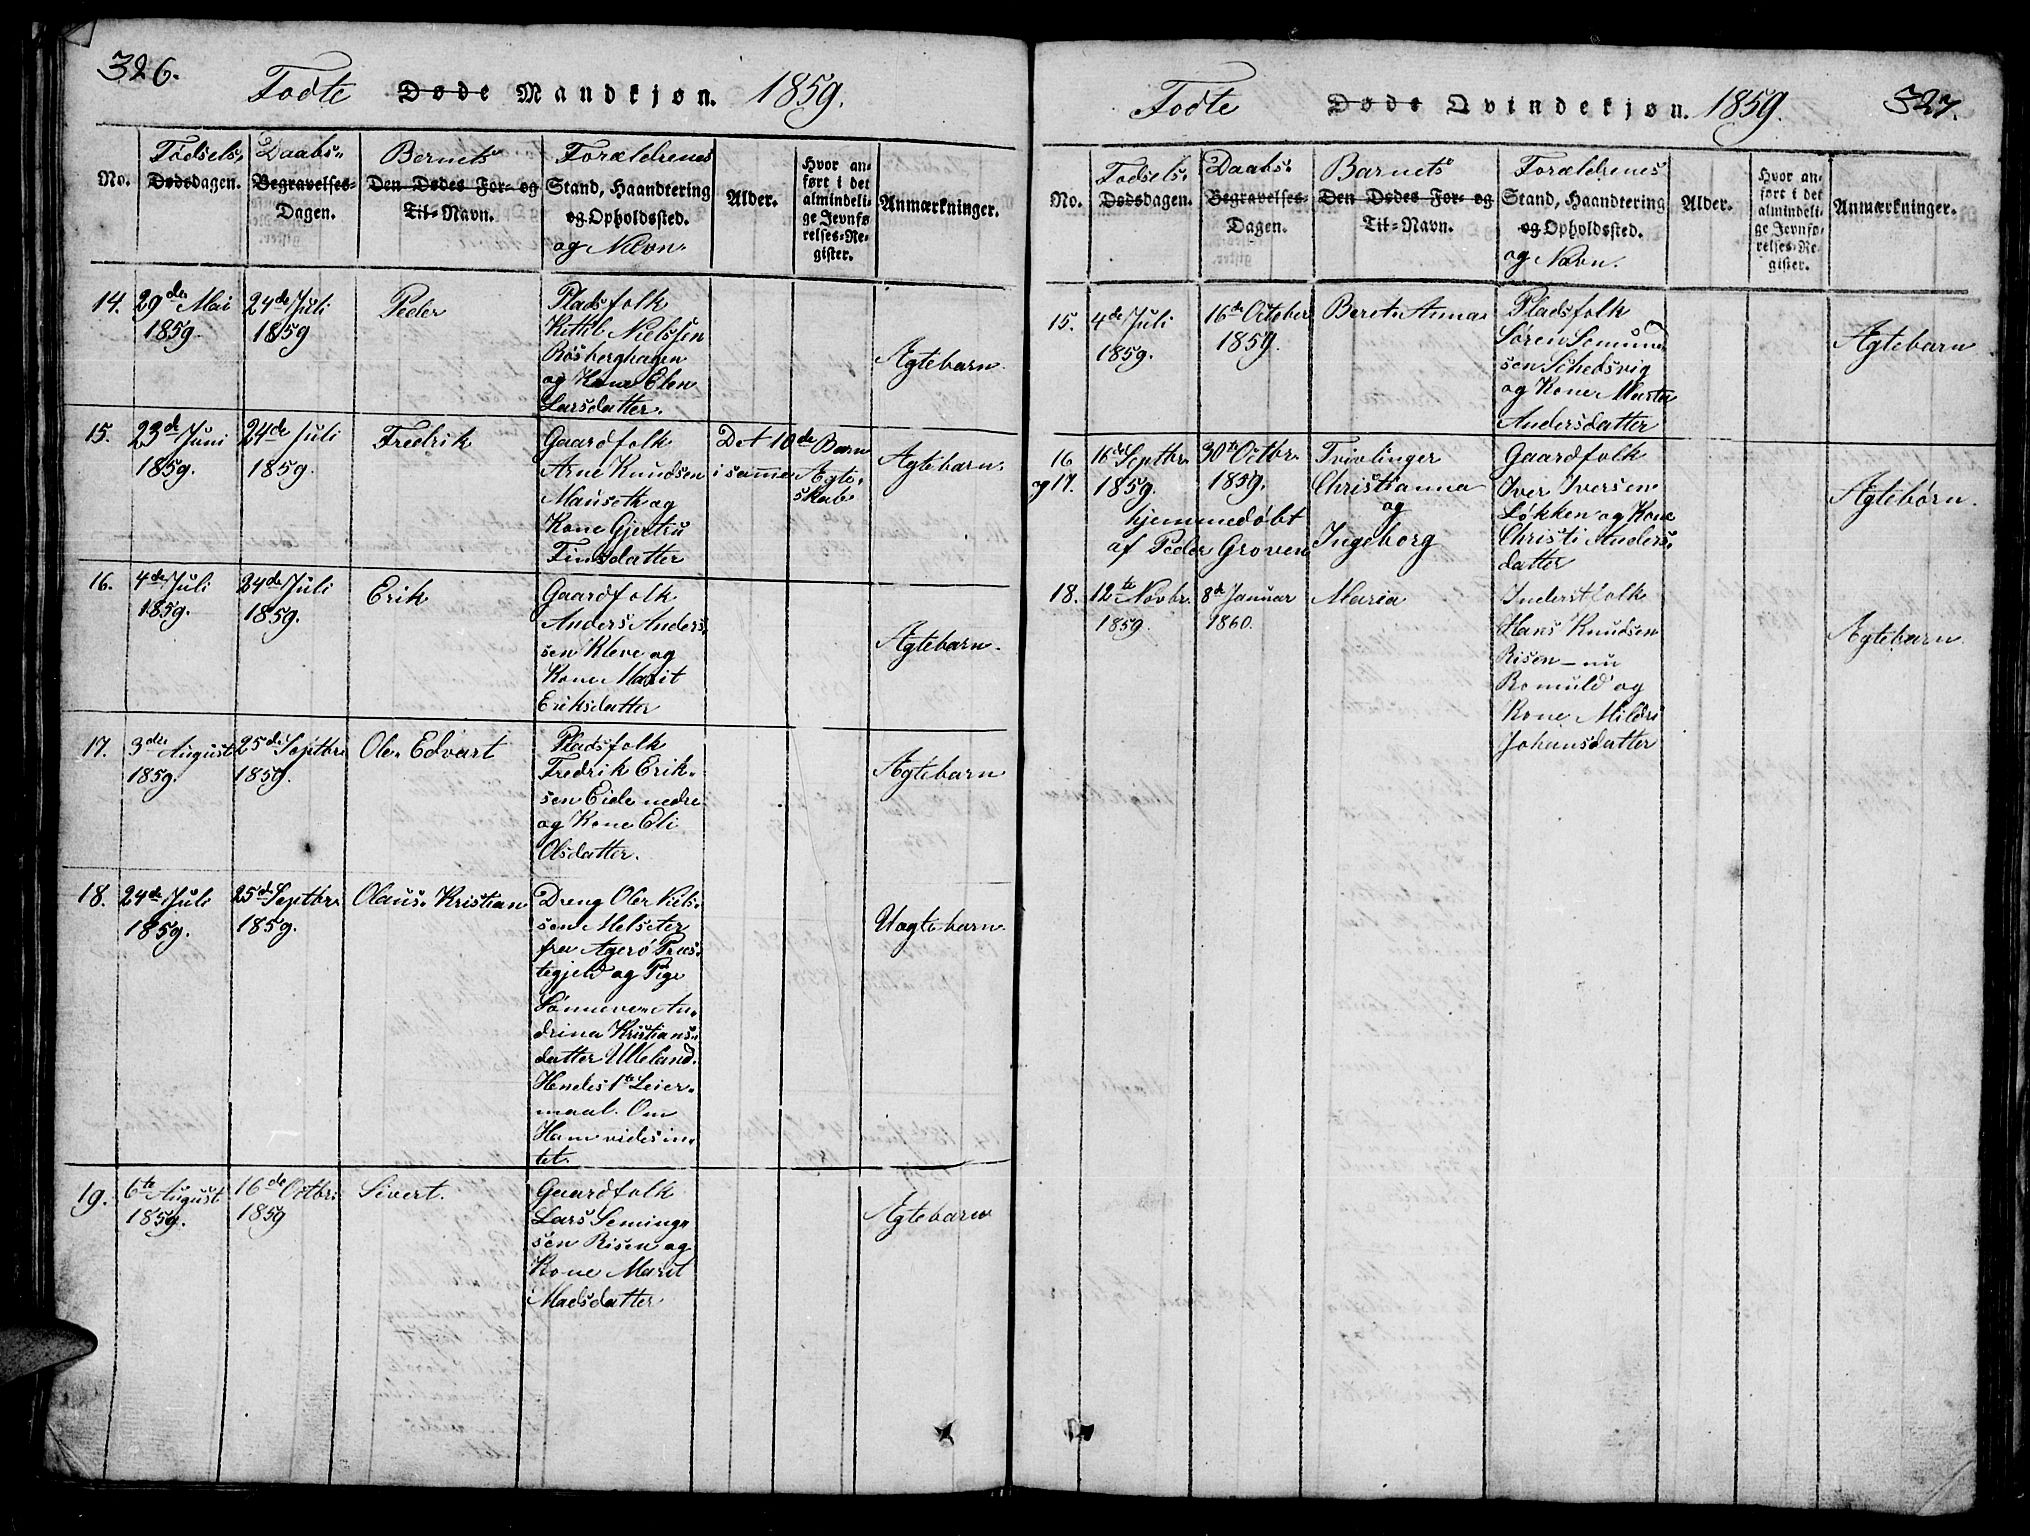 326.
Fødte Døde Mandkjøn. 1859.
No.
Fødsels-
Dødsdagen.
Daabs-
Begravelses-
Dagen.
Barnets
Den Dødes For- og
Til-Navn.
Forældrenes
Stand, Haandtering
og Opholdssted.
og Navn.
Alder.
Hvor an-
ført i det
almindeli-
ge Jevnfø-
relses-Re-
gister.
Anmærkninger.
14. 29de Mai
1859.
24de Juli
1859
Peder
Pladsfolk
Kittil Nielssen
Røsberghagen
og Kone Elen
Larsdatter.
Ægtebarn.
15. 23de Juni
1859.
24de Juli
1859.
Fredrik
Gaardfolk
Arne Knudsen
Mauseth og
Kone Gjertru
Finsdatter
Det 10de Barn
i samme Ægte-
skab
Ægtebarn.
16. 4de Juli
1859.
24de Juli
1859.
Erik
Gaardfolk
Anders Anders-
sen Kleve og
Kone Marit
Eriksdatter
Ægtebarn.
17. 3die August
1859.
25de Septbr.
1859.
Ole Edvart
Pladsfolk
Fredrik Erik-
sen Eide nedre
og Kone Eli
Olsdatter.
Ægtebarn
18. 24de Juli
1859.
25de Septbr.
1859.
Olaus Kristian
Dreng Ole Niels-
sen Melseter
fra Agerø Præs-
tegjeld og Pige
Sønneve An-
drina Kristians-
datter Ulleland.
Hendes 1te Leier-
maal. Om
Ham vides in-
tet.
Uægtebarn
19. 6te August
1859.
16de Octbr.
1859
Sivert.
Gaardfolk
Lars Seming-
sen Risen og
Kone Marit
Madsdatter
Ægtebarn
Fødte Døde Qvindekjøn. 1859. 327.
No.
Fødsels-
Dødsdagen.
Daabs-
Begravelses-
Dagen.
Barnets
Den Dødes For- og
Til-Navn.
Forældrenes
Stand, Haandtering
og Opholdssted.
og Navn.
Alder.
Hvor an-
ført i det
almindeli-
ge Jevnfø-
relses-Re-
gister.
Anmærkninger.
15. 4de Juli
1859.
16de October
1859.
Beret Anna
Pladsfolk
Søren Semund-
sen Schedsvig
og Kone Marta
Andersdatter
Ægtebarn
16
og 17.
16de Septbr.
1859.
30te Octbr.
1859.
hjemmedøbt
af Peder Groven
Tvivlinger
Christianna
og
Ingeborg
Gaardfolk
Iver Iversen
Løkken og Kone
Christi Anders-
datter
Ægtebørn.
18. 12te Novbr.
1859.
8de Januar
1860.
Maria
Inderstfolk
Hans Knudsen
Risen – nu
Romuld og
Kone Mildri
Johansdatter
Ægtebarn